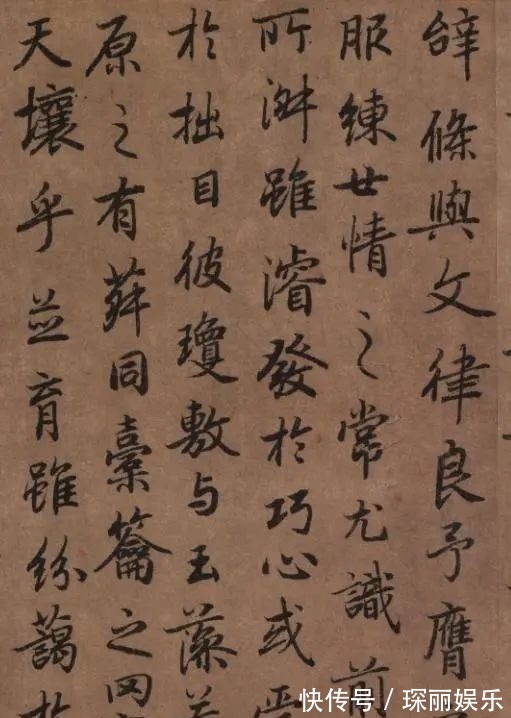 辤條與文律良予膺
服練世情之常尤識前
所淑雖濬發於巧心或
於拙目彼瓊敷与玉藻
原之有菽同橐籥之罔
天壤乎並育雖紛藹於
快传号 / 琛丽娱乐